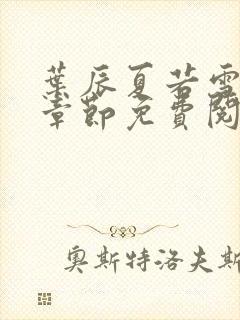 葉辰夏若雪
章節免費閱
奥斯特洛夫斯